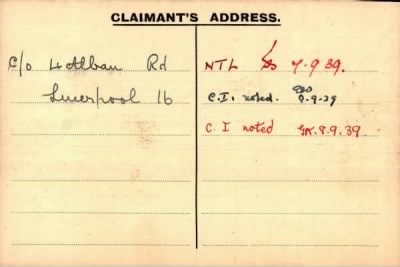 CLAIMANT'S ADDRESS.
C/o 4 Alban Rd
Liverpool 16
NTL 7-9 39.
C.I. noted. 8-9-39
C.I noted 8.9.39.